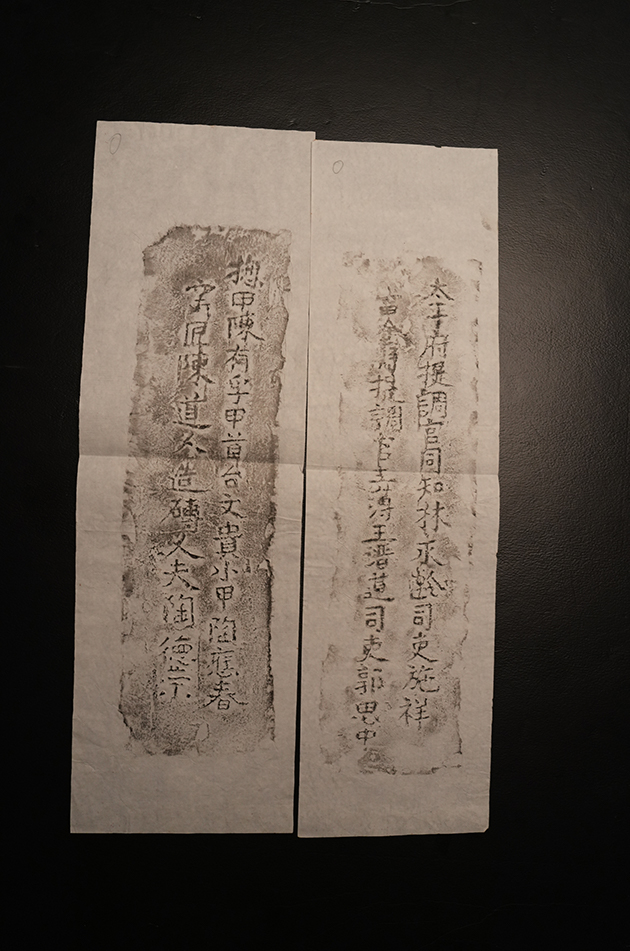 太平府提調官同知林永齡司吏施祥
當塗縣提調官主簿王潛道司吏郭思中
揔甲陳有孚甲首台文貴小甲陶應春
窑匠陳道名造磚人夫陶德宗